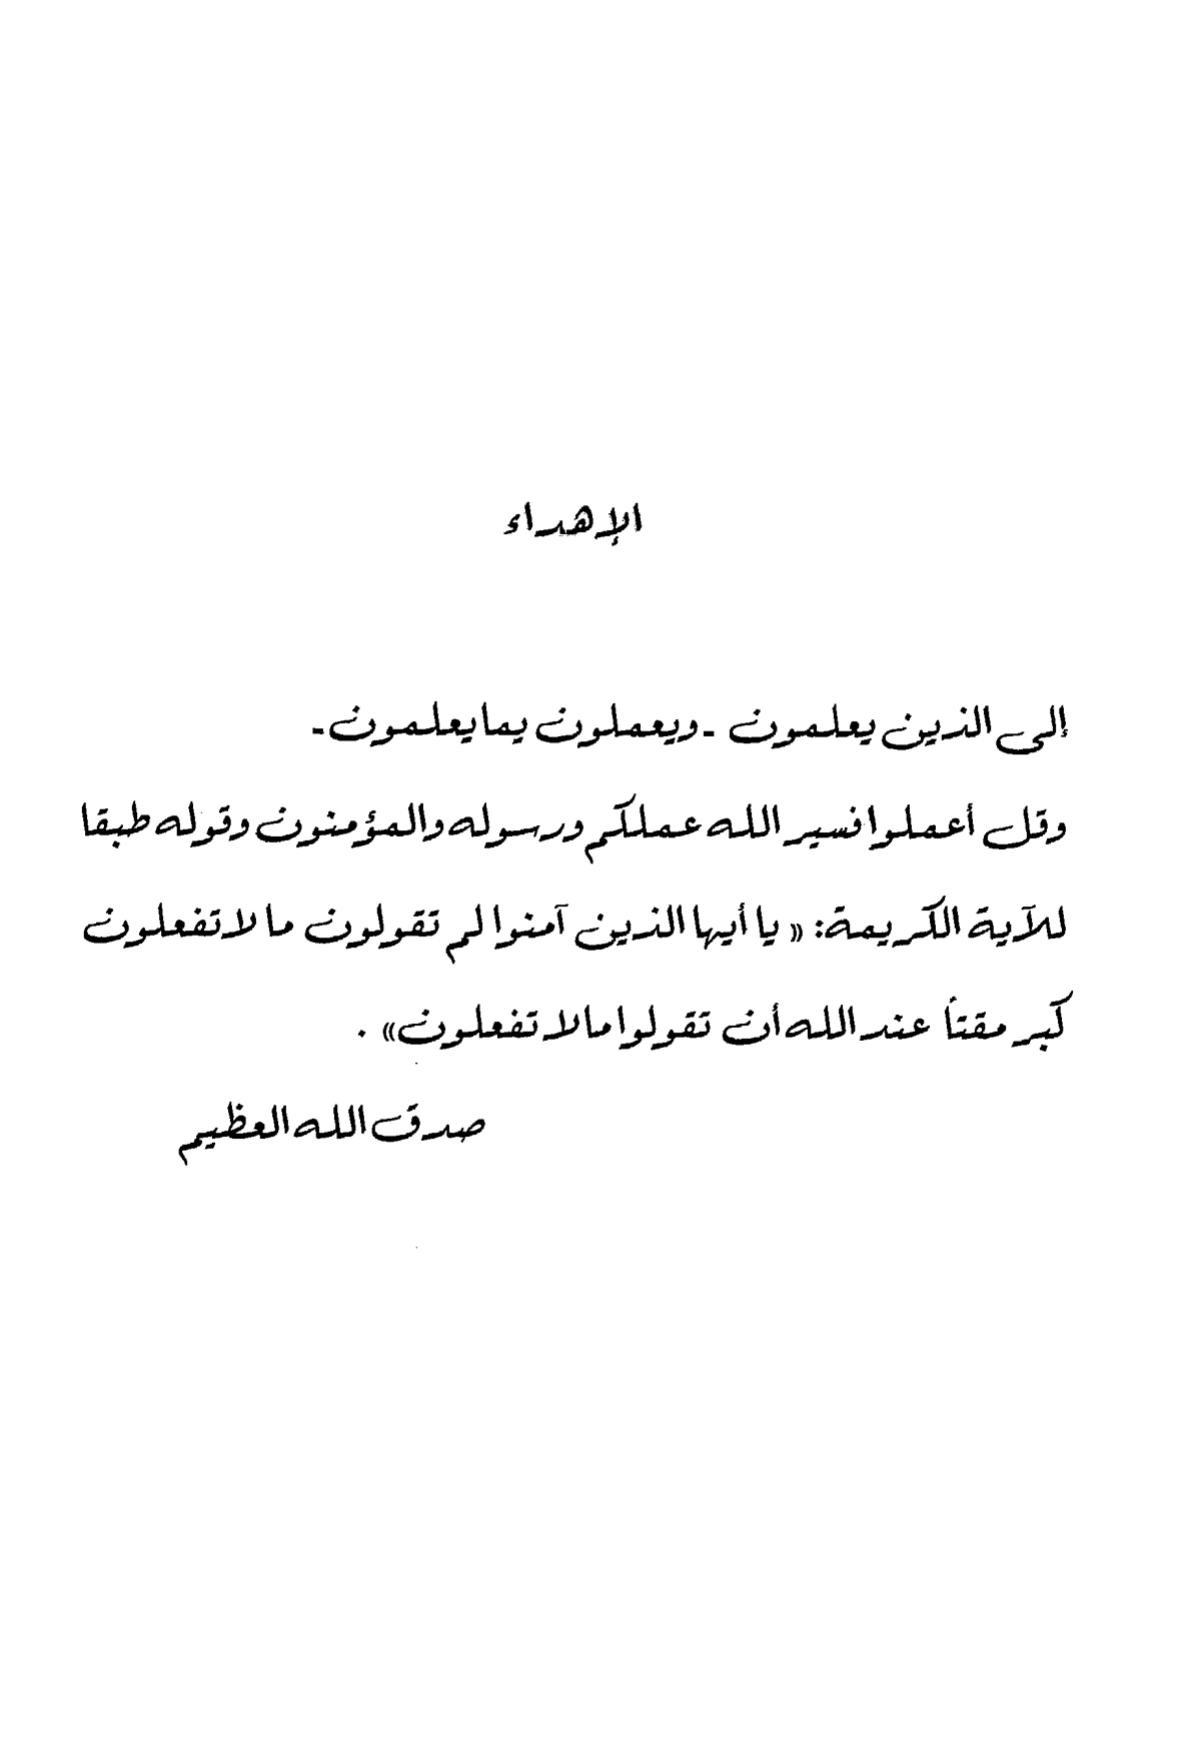 الإهداء
إلى الذين يعلمون - ويعملون بما يعلمون -
وقل أعملوا فسير الله عملكم ورسوله والمؤمنون وقوله طبقا
للآية الكريمة: « يا أيها الذين آمنوا لم تقولون ما لا تفعلون
كبر مقتاً عند الله أن تقولوا ما لا تفعلون» .
صدق الله العظيم